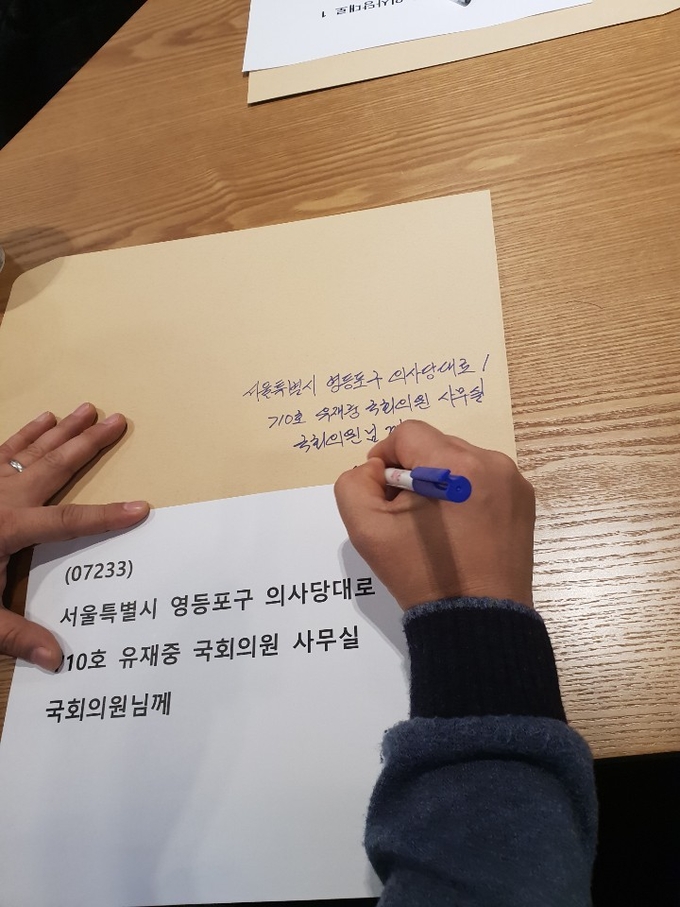 의사당대로 1
서울특별시 영등포구 의사당대로 1
710호 유재중 국회의원 사무실
국회의원님
(07233)
서울특별시 영등포구 의사당대로
10호 유재중 국회의원 사무실
국회의원님께